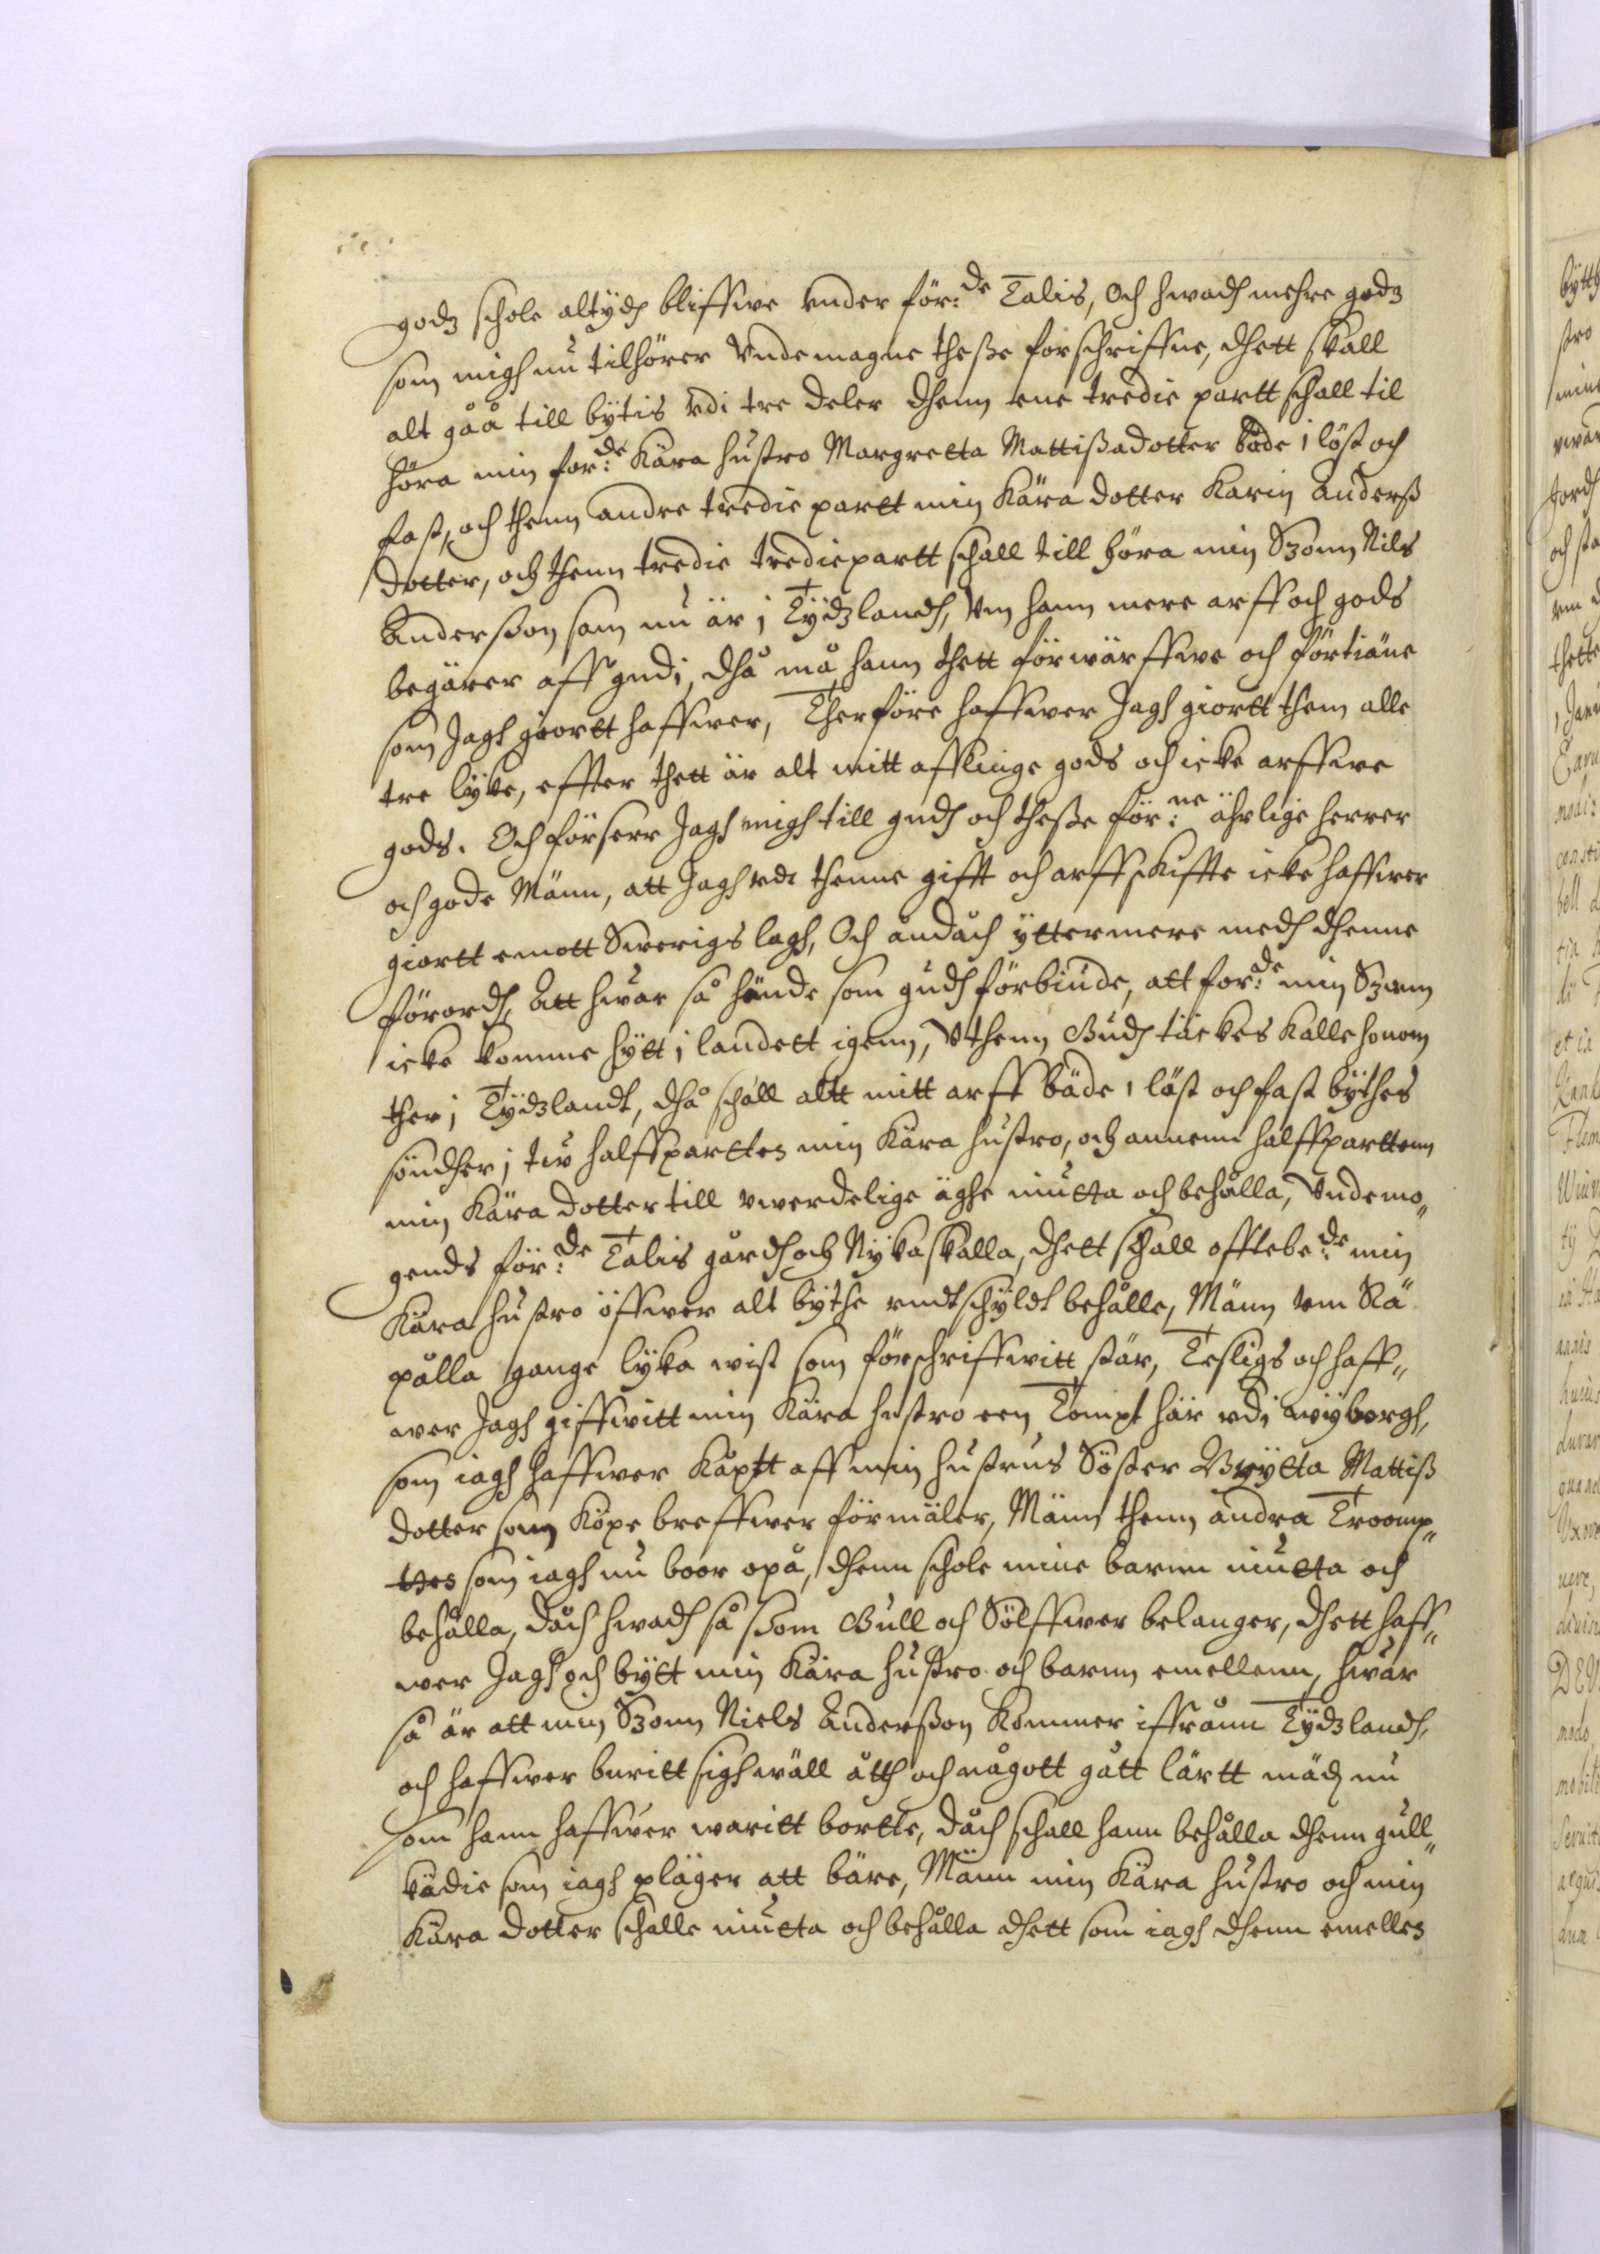 godz schole altijdh bliffwe vnder för:de Talis, Och hwadh mehre godz
som migh nu tilhörer Vndemagne thesse forschriffne, dhett skall
alt gåå till bytis vdi tre deler dhenn ene tredie partt schall til
höra min for:de Kära hustro Margretta Mattissadotter både i löst och
fast, och thenn andre tredie partt min Kära dotter Karin Anderss
dotter, och thenn tredie trediepartt schall till höra min Szonn Nils
Andersson som nu är i Tÿdzlandh, Vm hann mere arff och gods
begärer aff gudi, dhå må hann thett förwärffwe och förtiäne
som Jagh giortt haffwer, Therföre haffwer Jagh giortt them alle
tre lÿke, effter thett är alt mitt afflinge gods och icke arffwe
gods. Och förseer Jagh migh till gudh och thesse för:ne ährlige herrer
och gode Männ, att Jagh vdi thenne gifft och arffskiffte icke haffwer
giortt emott Swerigs lagh, Och ändåch ÿttermere medh dhenne
förordh, Att hwar så hände som gudh förbiude, att for:de min Szonn
icke komme hÿtt i landett igenn, Vthenn Gudh täckes kalle honom
ther i Tÿdzlandt, dhå schall altt mitt arff både i löst och fast bÿthes
sönдher i tw halffparttes min Kära hustro, och annenn halffparttenn
min Kära dotter till ewerdelige äghe niutta och behålla, Vndemo„
gends för:de Talis gårdh och Nÿkaskalla, dhett schall offtebe:de min
Kära hustro öffwer alt bÿthe endtschÿldt behålle, Männ vm Rä
pålla gange lÿka wist som förschriffwitt står, Tesligs och haff„
wer Jagh giffwitt min Kära hustro een Tompt här vdi wÿborgh,
som iagh haffwer Köptt aff min hustrus Söster Brÿtta Mattiss
dotter som Köpe breffwer förmäler, Männ thenn andra Troomp„
tes som iagh nu boor opå, dhenn schole mine barnn niutta och
behålla, dåch hwadh så ssom Gull och Sölffwer belanger, dhett haff„
wer Jagh och bÿtt min Kära hustro och barnn emellenn, hwar
så är att min Szonn Niels Andersson Kommer iffrånn Tÿdzlandh,
och haffwer buritt sigh wäll åtth och någott gått lärtt mädh nu
som hann haffwer waritt bortte, dåch schall hann behålla dhenn gull„
kädie som iagh pläger att bäre, Männ min Kära hustro och min
Kära dotter schalle niutta och behålla dhett som iagh dhenn emelles